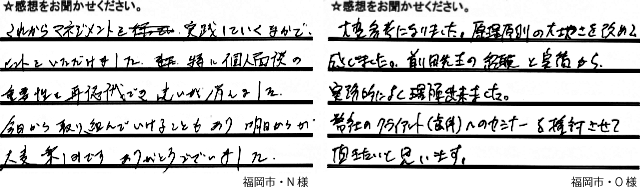 ☆感想をお聞かせください。
これからマネジメントを 実践していくなかで、
ヒントをいただけました。 特に個人面談の
重要性を再認識でき 迷いが消えました。
今日から取り組んでいけることもあり 明日からが
大変楽しみです ありがとうございました。
福岡市・N様
☆感想をお聞かせください。
大変参考になりました。原理原則の大切さを改めて
感じました。前田先生の経験と実績から、
実務的によく理解出来ました。
弊社のクライアント(歯科)へのセミナーを検討させて
頂きたいと思います。
福岡市・O様